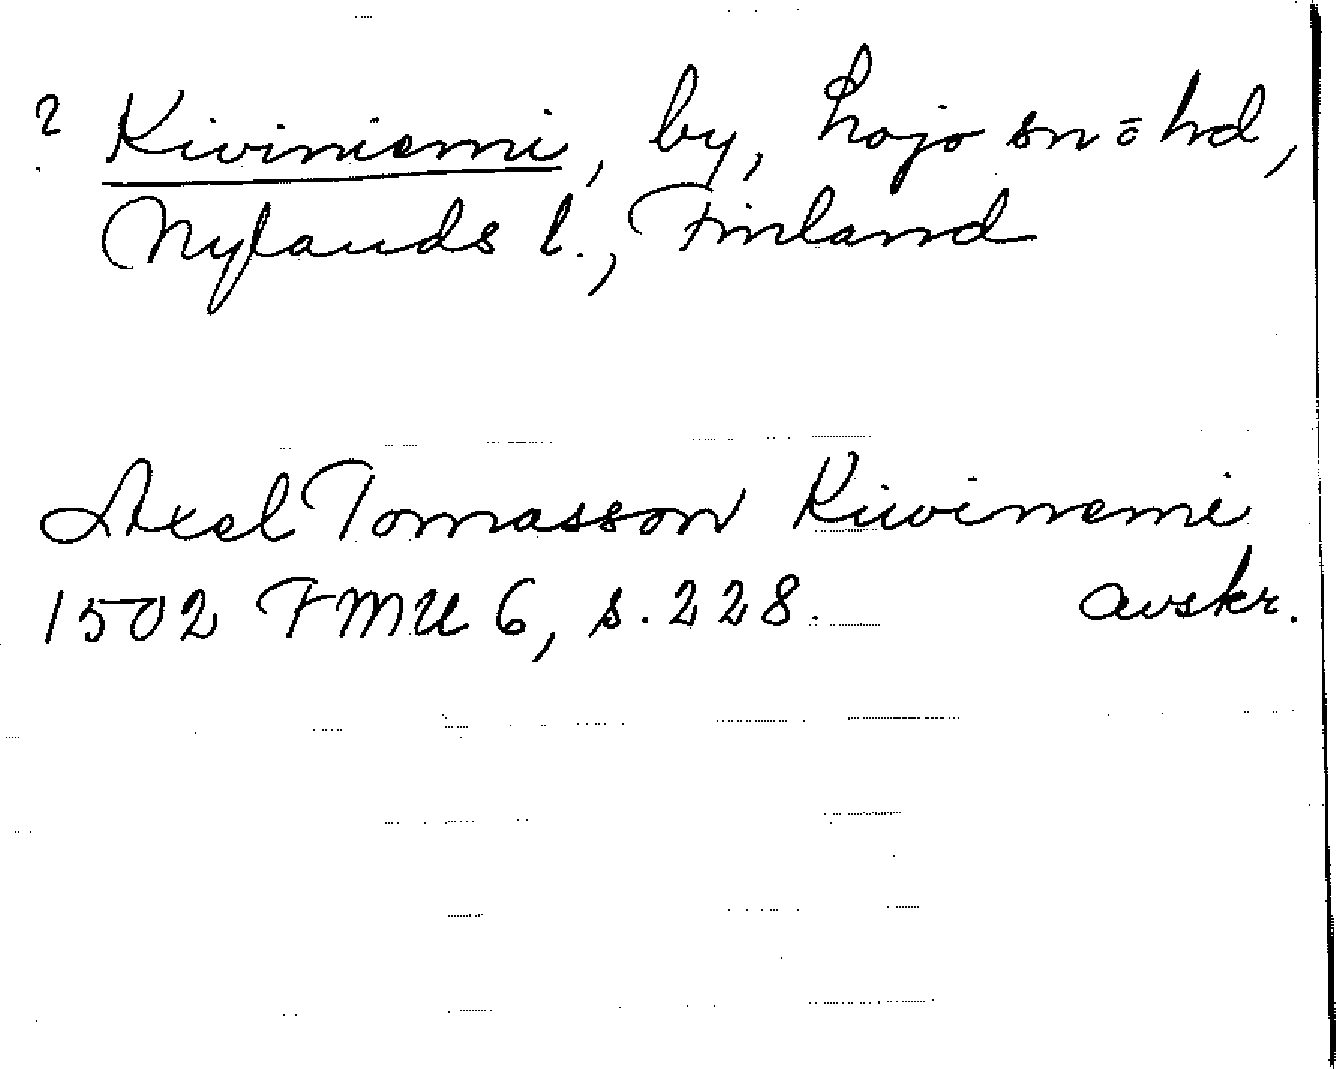 ? Kiviniemi, by, Lojo sn o hd,
Nylands l., Finland
Axel Tomasson Kiwinemi
1502 FMU 6, s. 228. avskr.